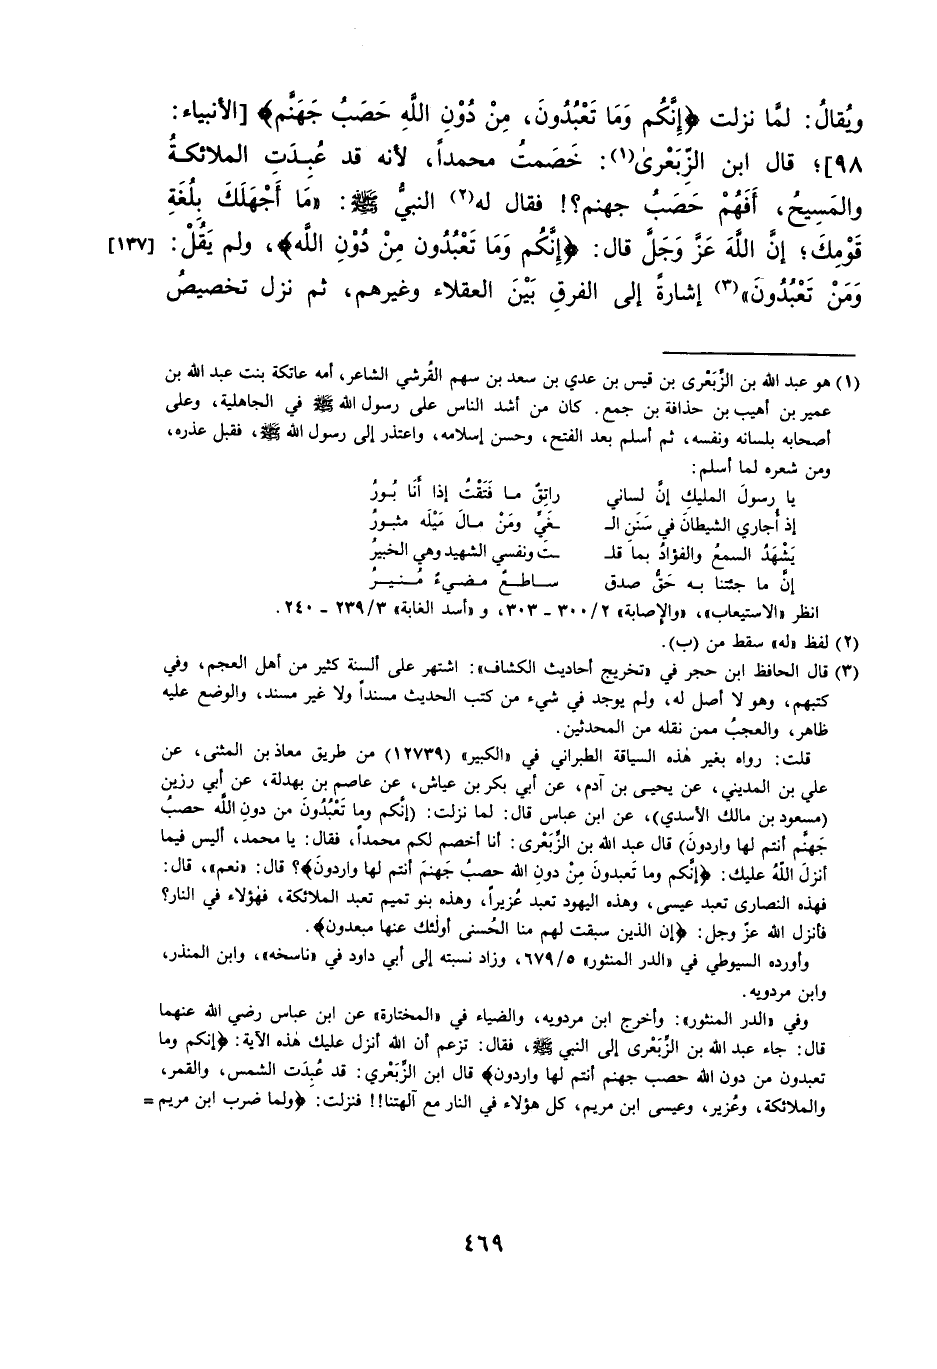 ويُقالُ: لمَّا نزلت ﴿إِنَّكُم وَمَا تَعْبُدُونَ، مِنْ دُوْنِ اللَّهِ حَصَبُ جَهَنَّم﴾ [الأنبياء:
٩٨]؛ قال ابن الزِّبَعْرىٰ(١): خَصَمتُ محمداً، لأنه قد عُبِدَتِ الملائكةُ
والمَسِيحُ، أَفَهُمْ حَصَبُ جهنم؟! فقال له(٢) النبيُّ ﷺ: «مَا أَجْهَلَكَ بِلُغَةِ
قَوْمِكَ؛ إنَّ اللَّهَ عَزَّ وَجَلَّ قال: ﴿إِنَّكُم وَمَا تَعْبُدُون مِنْ دُوْنِ اللَّه﴾، ولم يَقُلْ: [١٣٧]
وَمَنْ تَعْبُدُونَ»(٣) إشارةً إلى الفرقِ بَيْنَ العقلاء وغيرهم، ثم نزل تخصيصُ
(١) هو عبد الله بن الزِّبَعْرى بن قيس بن عدي بن سعد بن سهم القُرشي الشاعر، أمه عاتكة بنت عبد الله بن
عمير بن أهيب بن حذافة بن جمع. كان من أشد الناس على رسول الله ﷺ في الجاهلية، وعلى
أصحابه بلسانه ونفسه، ثم أسلم بعد الفتح، وحسن إسلامه، واعتذر إلى رسول الله ﷺ، فقبل عذره،
ومن شعره لما أسلم:
يا رسولَ المليكِ إنَّ لساني راتِقٌ ما فَتَقْتُ إذا أنَا بُورُ
إذ أُجاري الشيطانَ في سَنَنِ الـ ـغَيِّ ومَنْ مالَ مَيْلَه مثبورُ
يَشْهَدُ السمعُ والفؤادُ بما قلـ ـتَ ونفسي الشهيد وهي الخبيرُ
إنَّ ما جئتنا به حَقُّ صدق ساطعٌ مضيءٌ مُنيرُ
انظر «الاستيعاب»، «والإصابة» ٣٠٠/٢ - ٣٠٣، و «أسد الغابة» ٢٣٩/٣ - ٢٤٠.
(٢) لفظ «له» سقط من (ب).
(٣) قال الحافظ ابن حجر في «تخريج أحاديث الكشاف»: اشتهر على ألسنة كثير من أهل العجم، وفي
كتبهم، وهو لا أصل له، ولم يوجد في شيء من كتب الحديث مسنداً ولا غير مسند، والوضع عليه
ظاهر، والعجبُ ممن نقله من المحدثين.
قلت: رواه بغير هٰذه السياقة الطبراني في «الكبير» (١٢٧٣٩) من طريق معاذ بن المثنى، عن
علي بن المديني، عن يحيى بن آدم، عن أبي بكر بن عياش، عن عاصم بن بهدلة، عن أبي رزين
(مسعود بن مالك الأسدي)، عن ابن عباس قال: لما نزلت: (إنَّكم وما تَعْبُدُونَ من دونِ اللَّه حصبُ
جَهنَّم أنتم لها واردون) قال عبد الله بن الزِّبَعْرى: أنا أخصم لكم محمداً، فقال: يا محمد، أليس فيما
أنزلَ اللَّهُ عليك: ﴿إنَّكم وما تَعبدونَ مِنْ دونِ الله حصبُ جَهنمَ أنتم لها واردونَ﴾؟ قال: «نعم»، قال:
فهذه النصارى تعبد عيسى، وهذه اليهود تعبد عُزيراً، وهذه بنو تميم تعبد الملائكة، فهٰؤلاء في النار؟
فأنزل الله عزّ وجل: ﴿إن الذين سبقت لهم منا الحُسنى أولٰئك عنها مبعدون﴾.
وأورده السيوطي في «الدر المنثور» ٦٧٩/٥، وزاد نسبته إلى أبي داود في «ناسخه»، وابن المنذر،
وابن مردويه.
وفي «الدر المنثور»: وأخرج ابن مردويه، والضياء في «المختارة» عن ابن عباس رضي الله عنهما
قال: جاء عبد الله بن الزِّبَعْرى إلى النبي ﷺ، فقال: تزعم أن الله أنزل عليك هٰذه الآية: ﴿إنكم وما
تعبدون من دون الله حصب جهنم أنتم لها واردون﴾ قال ابن الزِّبَعْري: قد عُبِدَت الشمس، والقمر،
والملائكة، وعُزير، وعيسى ابن مريم، كل هؤلاء في النار مع آلهتنا!! فنزلت: ﴿ولما ضرب ابن مريم =
٤٦٩